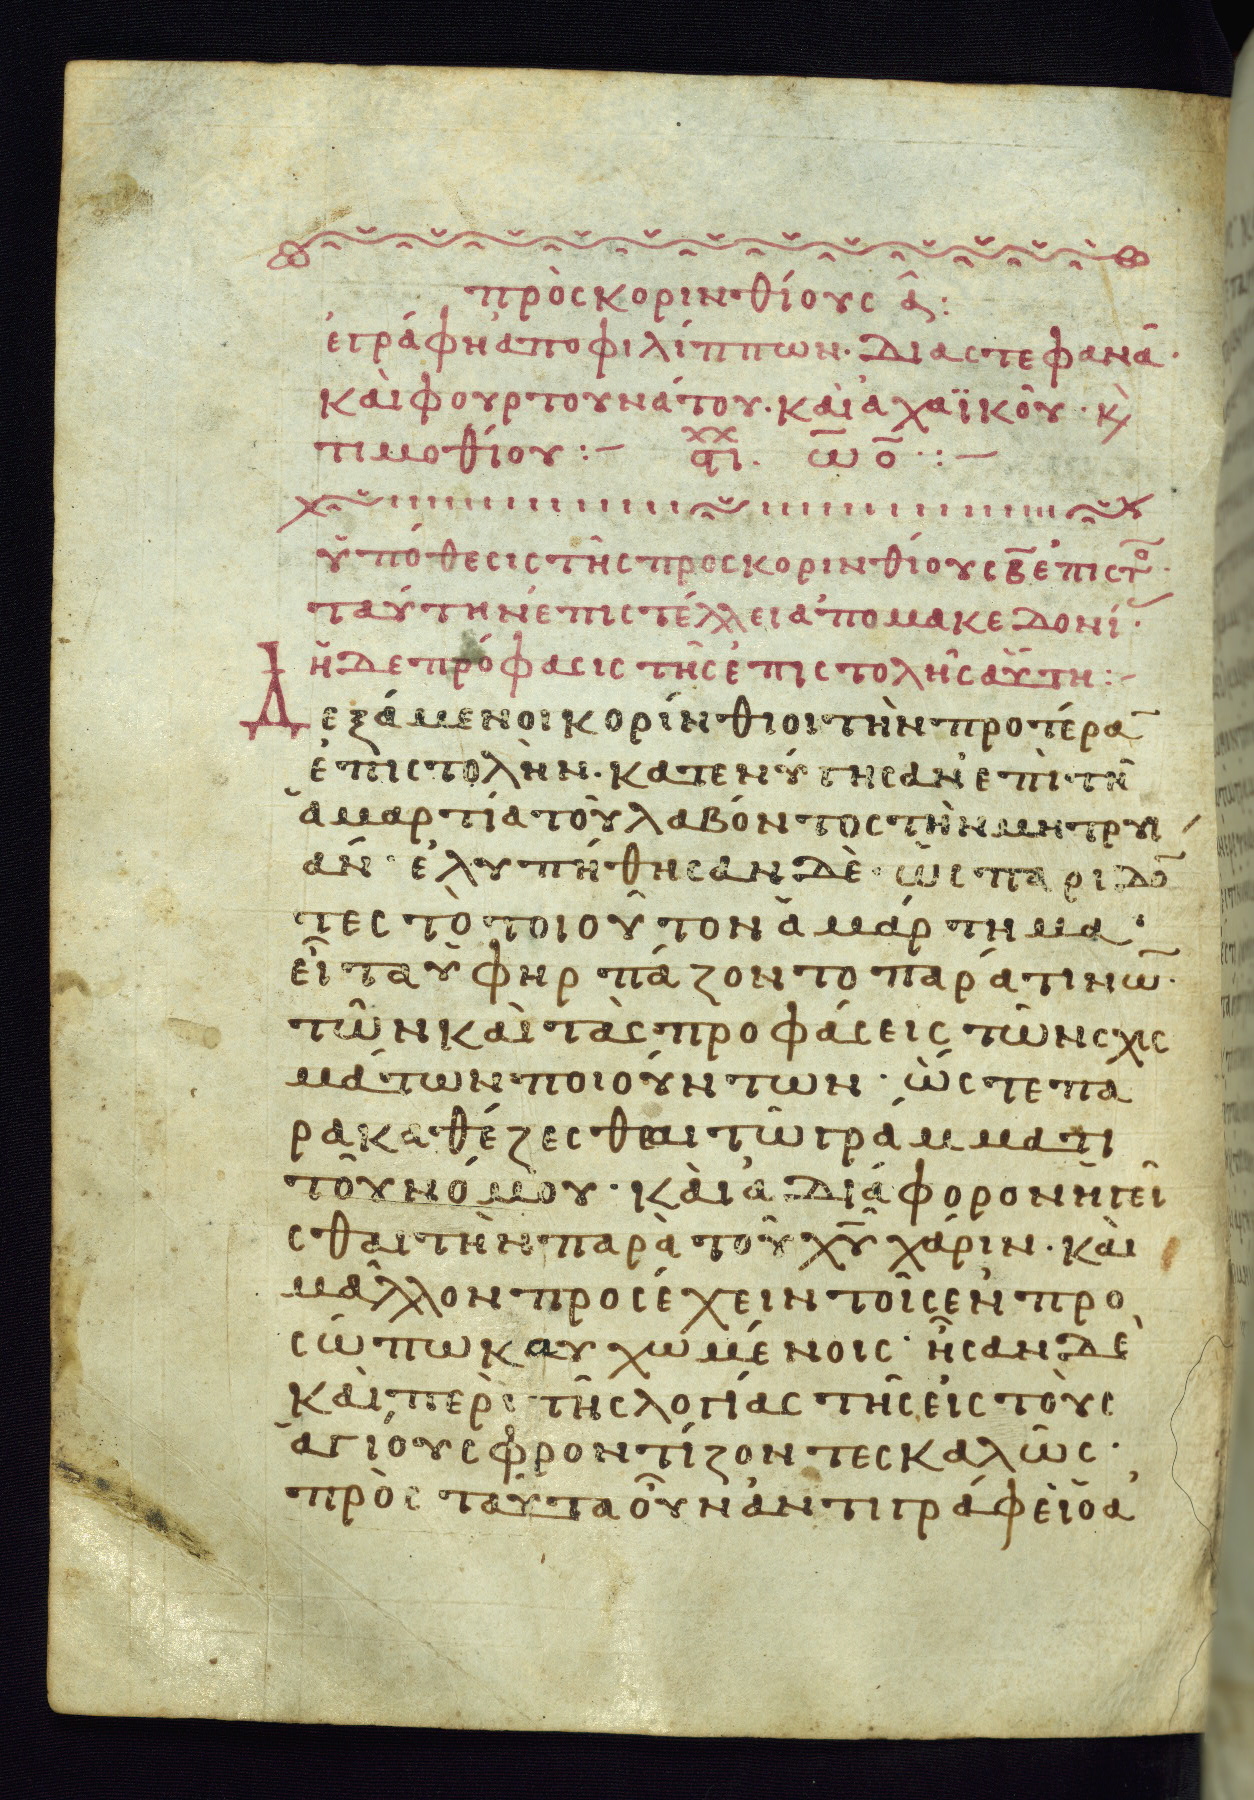 πρὸς κορινθίους ᾱ:
ἐγράφη ἀπο φιλίππων· διὰ στεφανᾶ·
καὶ φουρτουνάτου· καὶ ἀχαϊκοῦ· κ̀
τιμοθίου :– στι. ω̅ο̅ ·:–
ὑπόθεσις τῆς προς κορινθίους β̅ ἐπιστο
ταύτην ἐπιστέλλει ἀπο μακεδονί·
ἡ δε πρόφασις τῆς ἐπιστολῆς αὕτη:–
Δεξάμενοι κορίνθιοι τὴν προτέρα̅
ἐπιστολὴν· κατενύγησαν ἐπὶ τῆ
ἁμαρτία τοῦ λαβόντος τὴν μητρυι
άν· ἐλυπήθησαν δὲ ὡς παριδο̅
τες τὸ τοιοῦτον ἁμάρτημα·
εἶτα ὑφηρπάζοντο παρά τινω̅·
τῶν καὶ τὰς προφάσεις τῶν σχισ
μάτων ποιούντων· ὥστε πα
ρακαθέζεσθαι τῶ γράμματι
τοῦ νόμου· καὶ ἀδιάφορον ἡγεῖ
σθαι τὴν παρὰ τοῦ χ̅υ̅ χάριν· καὶ
μᾶλλον προσέχειν τοῖς ἐν προ
σώπω καυχωμένοις· ἦσαν δὲ
καὶ περὶ τῆς λογίας τῆς εἰς τοὺς
ἁγίους φροντίζοντες καλῶς·
πρὸς ταῦτα οὖν ἀντιγράφει ὁ ἀ